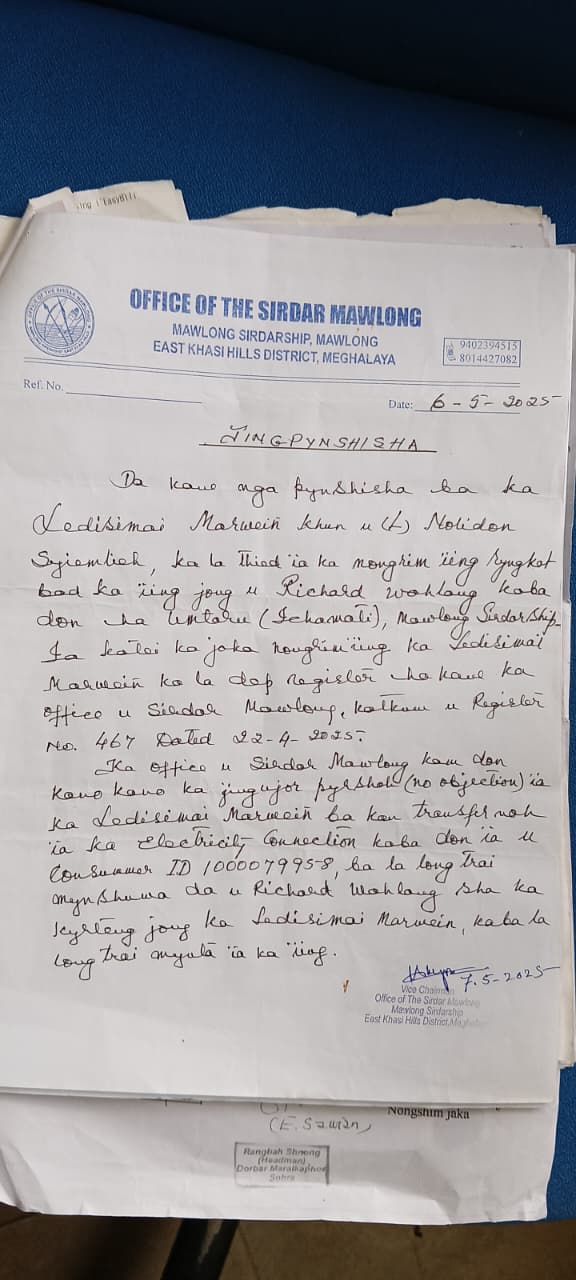 ing ("EasyBill
OFFICE OF THE SIRDAR MAWLONG
MAWLONG SIRDARSHIP, MAWLONG
EAST KHASI HILLS DISTRICT, MEGHALAYA
9402394515
8014427082
Ref. No.
Date: 6-5-2025
JINGPYNSHISHA
Da kane nga pynshisha ba ka
Ledisimai Marwein khun u (L) Nolidon
Syiemlieh, ka la thied ïa ka nongrim ïing ryngkat
bad ka ïing jong u Richard Wahlang kaba
don ha Umtaru (Ichamati), Mawlong Sirdarship.
Ïa katei ka jaka nongrim ïing ka Ledisimai
Marwein ka la dep register ha kane ka
office u Sirdar Mawlong, katkum u Register
No. 467 Dated 22-4-2025.
Ka office u Sirdar Mawlong kam don
kano kano ka jingujor pyrshah (no objection) ïa
ka Ledisimai Marwein ba kan transfer noh
ïa ka Electricity Connection kaba don ïa u
Consummer ID 1000079958, ba la long trai
mynshuwa da u Richard Wahlang sha ka
kyrteng jong ka Ledisimai Marwein, kaba la
long trai mynta ïa ka ïing.
7.5-2025
Vice Chairman
Office of The Sirdar Mawlong
Mawlong Sirdarship
East Khasi Hills District, Meghalaya
Nongshim jaka
(E. Sawian)
Rangbah Shnong
(Headman)
Dorbar Maraikaphon
Sohra